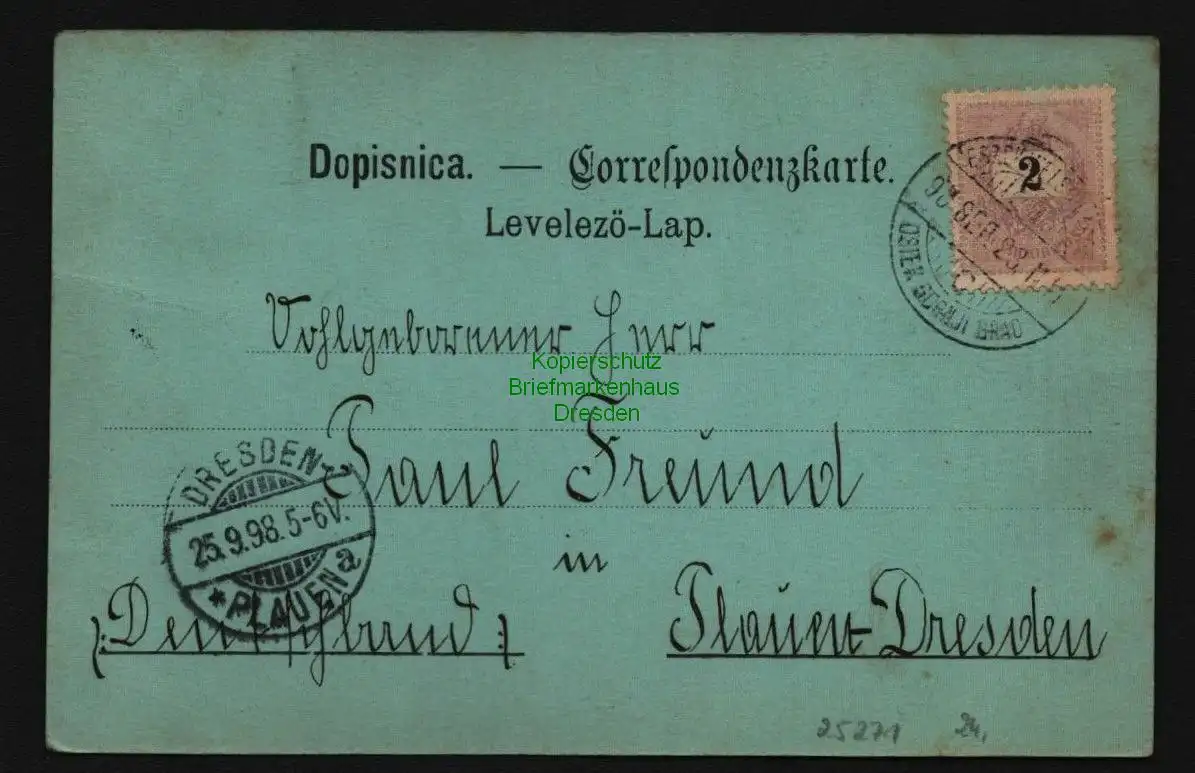 Dopisnica. — Correſpondenzkarte.
Levelezö-Lap.
2
OSIEK GORNJI GRAD
Vohlgeborener Herr
Kopierschutz
Briefmarkenhaus
Dresden
Paul Freund
DRESDEN
25.9.98.5-6V.
* PLAUEN a
in
(: Deutschland :)
Plauen-Dresden
25271 24,